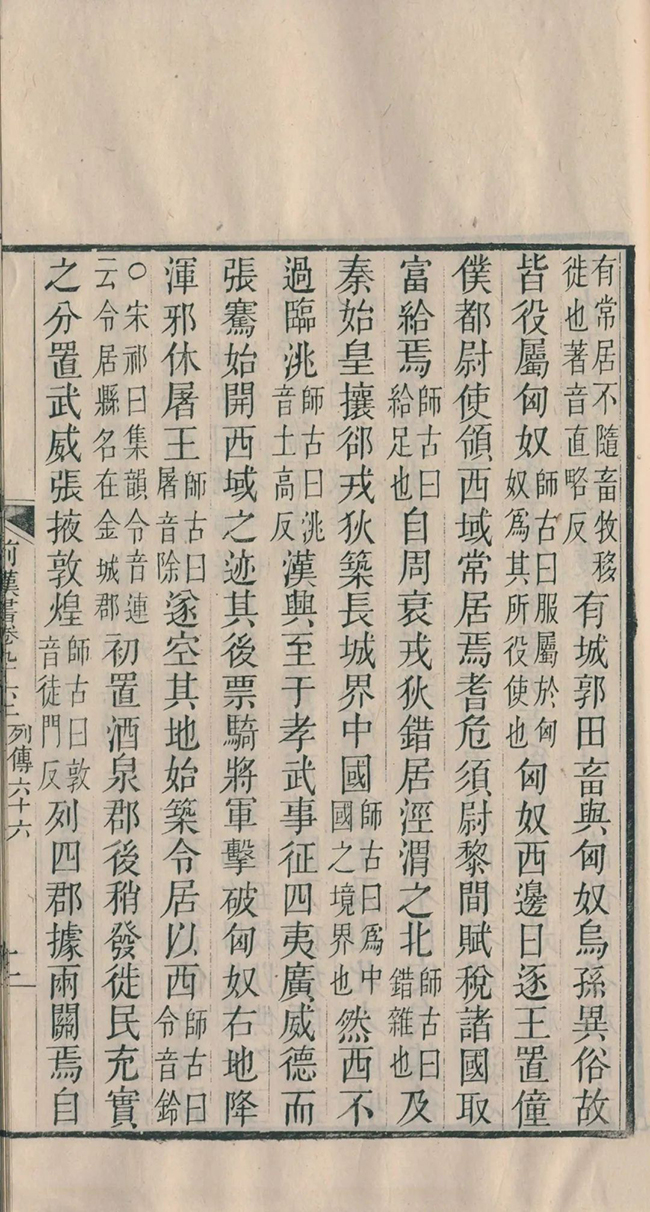 有常居不隨畜牧移徙也著音直略反有城郭田畜與匈奴烏孫異俗故
皆役屬匈奴師古曰服屬於匈奴爲其所役使也匈奴西邊日逐王置僮
僕都尉使領西域常居焉耆危須尉黎間賦稅諸國取
富給焉師古曰給足也自周衰戎狄錯居涇渭之北師古曰錯雜也及
秦始皇攘郤戎狄築長城界中國師古曰爲中國之境界也然西不
過臨洮師古曰洮音土高反漢興至于孝武事征四夷廣威德而
張騫始開西域之迹其後票騎將軍擊破匈奴右地降
渾邪休屠王師古曰屠音除遂空其地始築令居以西師古曰令音鈴
○宋祁曰集韻令音連云令居縣名在金城郡初置酒泉郡後稍發徙民充實
之分置武威張掖敦煌師古曰敦音徒門反列四郡據兩關焉自
前漢書卷九十六上 列傳六十六